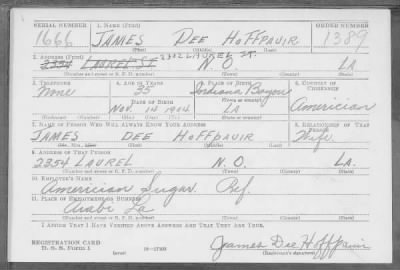 SERIAL NUMBER 1. NAME (Print) ORDER NUMBER
1666 JAMES DEE HOFFPAUIR 1389
(First) (Middle) (Last)
2. ADDRESS (Print) 2302 LAUREL ST.
2354 LAUREL ST N.O. LA
(Number and street or R. F. D. number) (Town) (County) (State)
3. TELEPHONE 4. AGE IN YEARS 5. PLACE OF BIRTH 6. COUNTRY OF CITIZENSHIP
None 35 Indiana Bayou
DATE OF BIRTH (Town or county)
Nov. 14 1904 LA American
(Exchange) (Number) (Mo.) (Day) (Yr.) (State or country)
7. NAME OF PERSON WHO WILL ALWAYS KNOW YOUR ADDRESS 8. RELATIONSHIP OF THAT PERSON
JAMES DEE HOFFPAUIR Wife
(Mr., Mrs., Miss) (First) (Middle) (Last)
9. ADDRESS OF THAT PERSON
2354 LAUREL N.O. LA.
(Number and street or R. F. D. number) (Town) (County) (State)
10. EMPLOYER'S NAME
American Sugar Ref.
11. PLACE OF EMPLOYMENT OR BUSINESS
Arabi La
(Number and street or R. F. D. number) (Town) (County) (State)
I AFFIRM THAT I HAVE VERIFIED ABOVE ANSWERS AND THAT THEY ARE TRUE.
REGISTRATION CARD
D. S. S. Form 1 (over) 16—17105 James Dee Hoffpauir
(Registrant's signature)